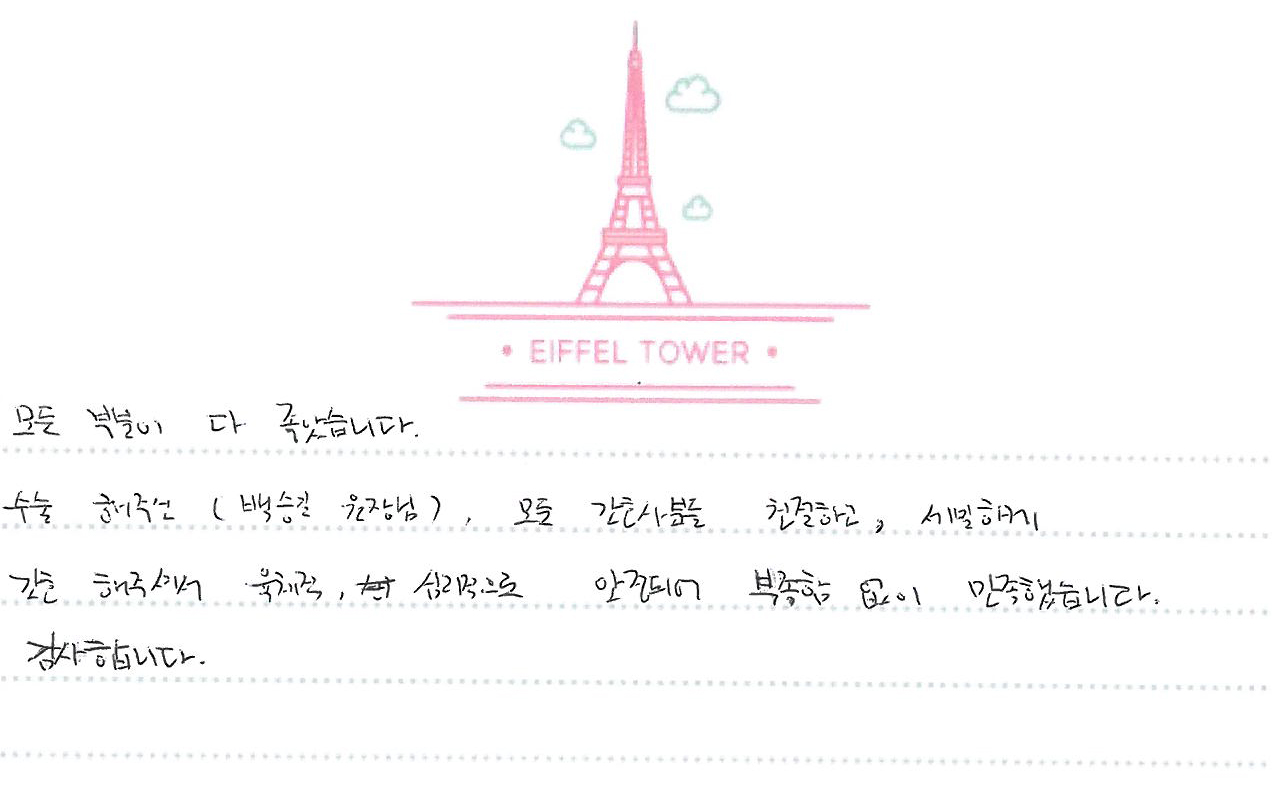 • EIFFEL TOWER •
모든 부분이 다 좋았습니다.
수술 해주신 (백승길 원장님), 모든 간호사분들 친절하고, 세밀하게
간호 해주셔서 육체적, 심리적으로 안정되어 부족함 없이 만족했습니다.
감사합니다.